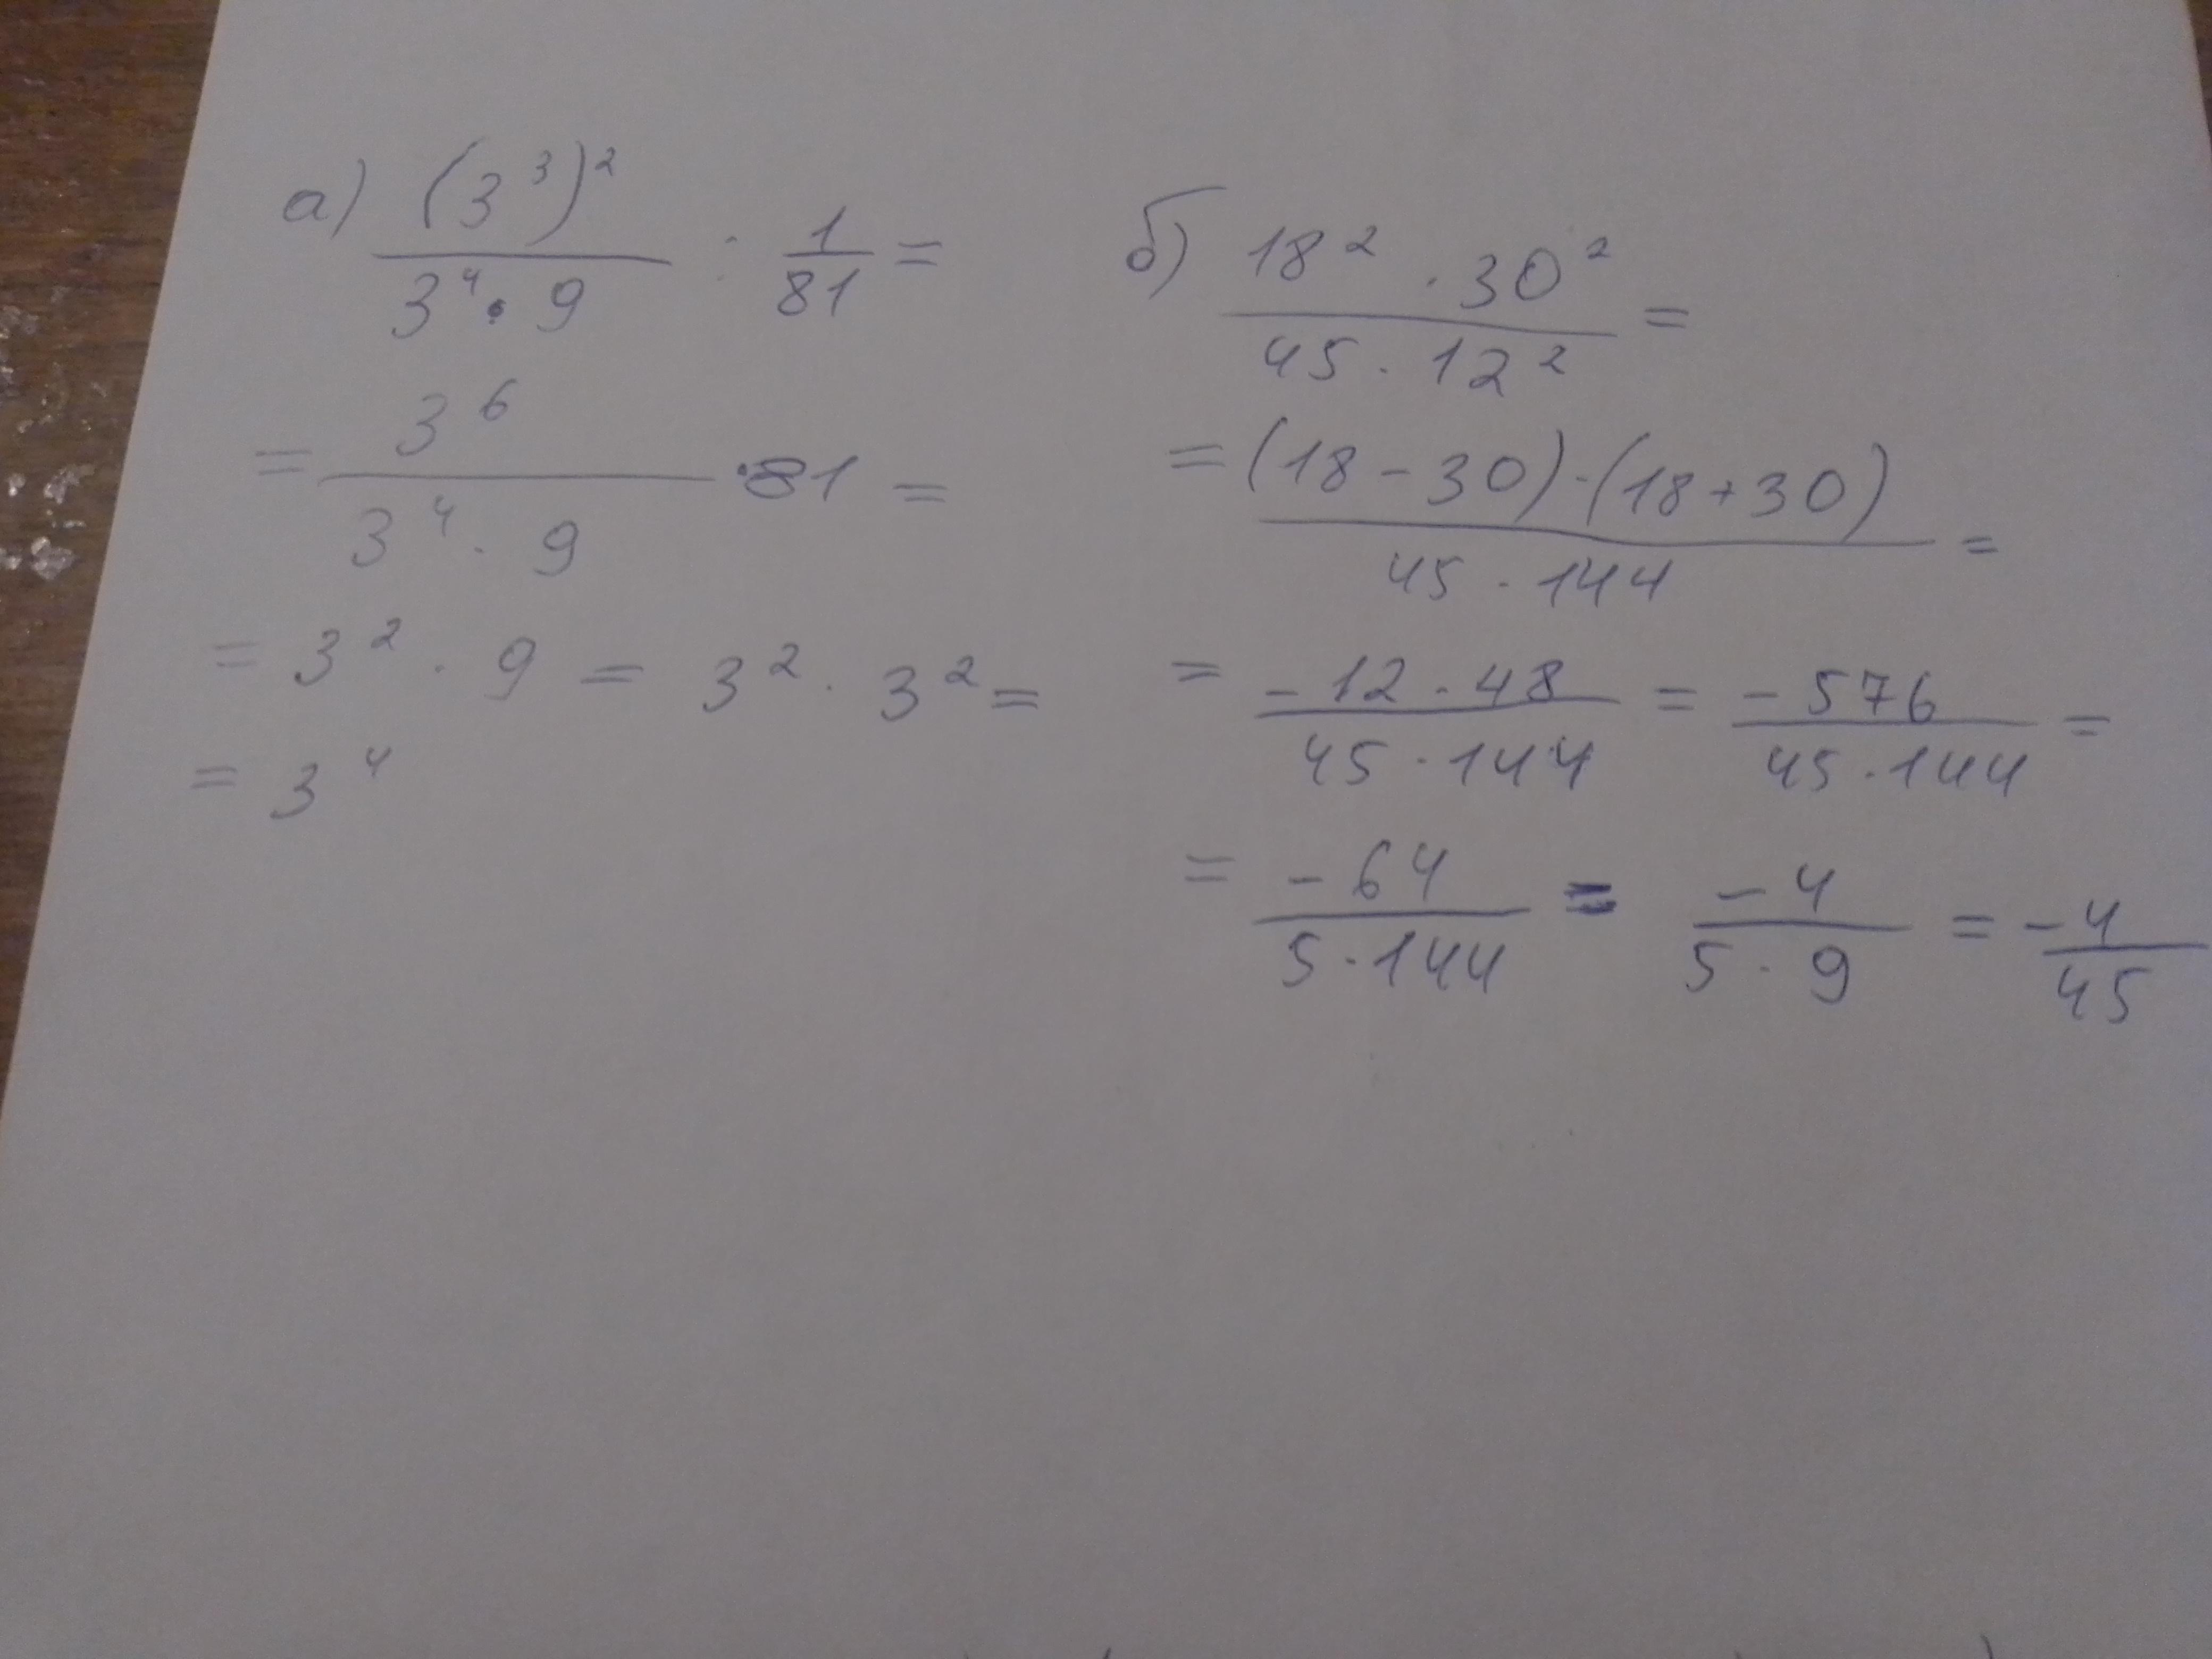 а) (3³)² / (3⁴ · 9) : 1/81 =
= 3⁶ / (3⁴ · 9) · 81 =
= 3² · 9 = 3² · 3² =
= 3⁴
б) (18² · 30²) / (45 · 12²) =
= ((18 - 30) · (18 + 30)) / (45 · 144) =
= (-12 · 48) / (45 · 144) = -576 / (45 · 144) =
= -64 / (5 · 144) = -4 / (5 · 9) = -4/45